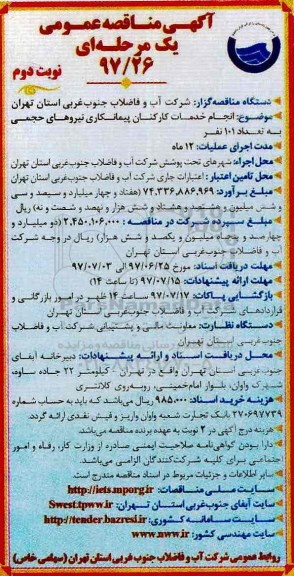 آگهی مناقصه عمومی
یک مرحله‌ای
۹۷/۲۶
نوبت دوم
دستگاه مناقصه‌گزار: شرکت آب و فاضلاب جنوب‌غربی استان تهران
موضوع: انجام خدمات کارکنان پیمانکاری نیروهای حجمی
به تعداد ۱۰۱ نفر
مدت اجرای عملیات: ۱۲ ماه
محل اجرا: شهرهای تحت پوشش شرکت آب و فاضلاب جنوب‌غربی استان تهران
محل تامین اعتبار: اعتبارات جاری شرکت آب و فاضلاب جنوب‌غربی استان تهران
مبلغ برآورد: ۷۴,۳۳۶,۸۸۶,۹۶۹ (هفتاد و چهار میلیارد و سیصد و سی
و شش میلیون و هشتصد و هشتاد و شش هزار و نهصد و شصت و نه) ریال
مبلغ سپرده شرکت در مناقصه: ۲,۴۵۰,۱۰۶,۰۰۰ (دو میلیارد و
چهارصد و پنجاه میلیون و یکصد و شش هزار) ریال در وجه شرکت
آب و فاضلاب جنوب‌غربی استان تهران
مهلت دریافت اسناد: مورخ ۹۷/۰۶/۲۵ الی ۹۷/۰۷/۰۳
مهلت ارائه پیشنهادات: ۹۷/۰۷/۱۵ (تا ساعت ۱۴)
بازگشایی پاکات: ۹۷/۰۷/۱۷ ساعت ۱۴ ظهر در امور بازرگانی و
قراردادهای شرکت آب و فاضلاب جنوب‌غربی استان تهران
دستگاه نظارت: معاونت مالی و پشتیبانی شرکت آب و فاضلاب
جنوب‌غربی استان تهران
محل دریافت اسناد و ارائه پیشنهادات: دبیرخانه آبفای
جنوب‌غربی استان تهران واقع در تهران، کیلومتر ۲۲ جاده ساوه،
شهرک واوان، بلوار امام‌خمینی، روبه‌روی کلانتری
هزینه خرید اسناد: ۹۸۵,۰۰۰ ریال می‌باشد که باید به حساب شماره
۲۷۰۶۹۷۷۳۹ بانک تجارت شعبه واوان واریز و فیش نقدی ارائه گردد.
هزینه درج آگهی در ۲ نوبت به عهده برنده مناقصه می‌باشد.
دارا بودن گواهی‌نامه صلاحیت ایمنی صادره از وزارت کار، رفاه و امور
اجتماعی برای کلیه شرکت‌کنندگان الزامی می‌باشد.
سایر اطلاعات و جزئیات مربوط در اسناد مناقصه مندرج است.
سایت ملی مناقصات: http://iets.mporg.ir
سایت آبفای جنوب‌غربی استان تهران: Swest.tpww.ir
سایت سامانه کشوری: http://tender.bazresi.ir
سایت مهندسی کشور: www.nww.ir
روابط عمومی شرکت آب و فاضلاب جنوب غربی استان تهران (سهامی خاص)